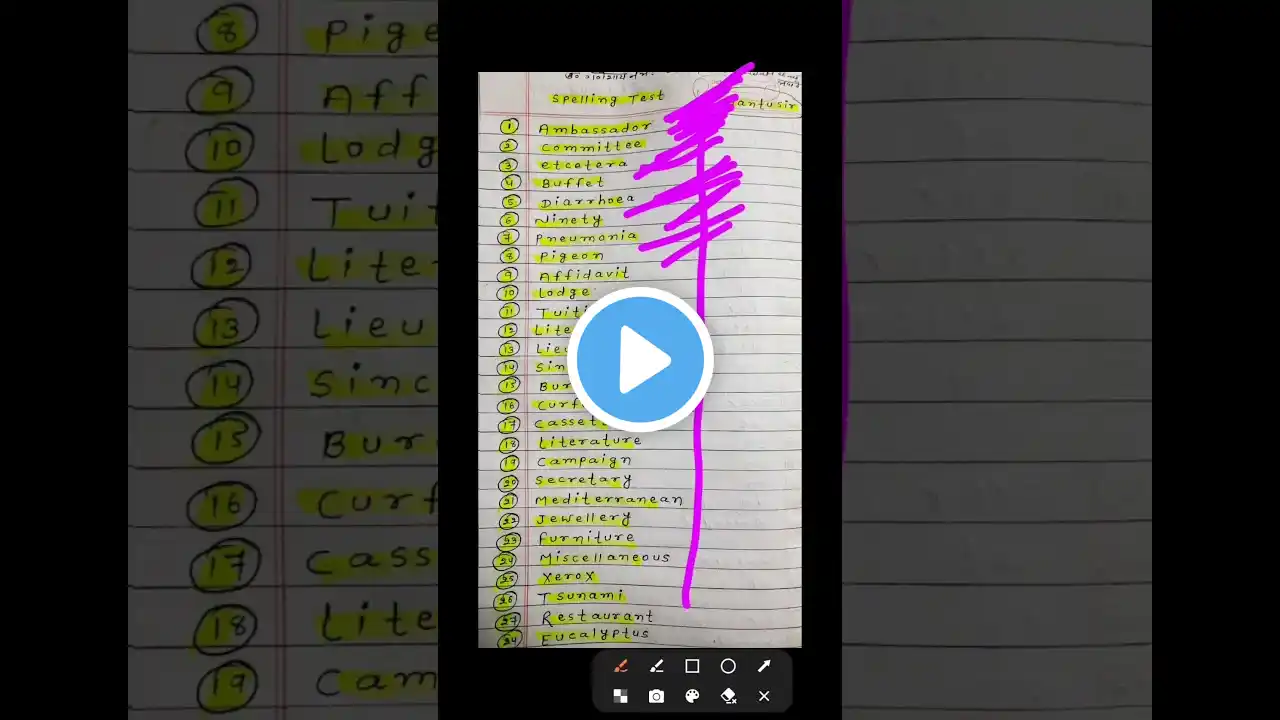 8 Pige
9 Aff
10 Lodg
11 Tuit
12 Lite
13 Lieu
14 Sinc
15 Bur
16 Curf
17 Cass
18 Lite
19 Cam
Spelling Test
antusir
1 Ambassador
2 Committee
3 etcetera
4 Buffet
5 Diarrhoea
6 Ninety
7 Pneumonia
8 Pigeon
9 Affidavit
10 Lodge
11 Tuiti
12 Lite
13 Lie
14 Sin
15 Bur
16 Curf
17 Casset
18 Literature
19 Campaign
20 Secretary
21 Mediterranean
22 Jewellery
23 Furniture
24 Miscellaneous
25 Xerox
26 Tsunami
27 Restaurant
28 Eucalyptus